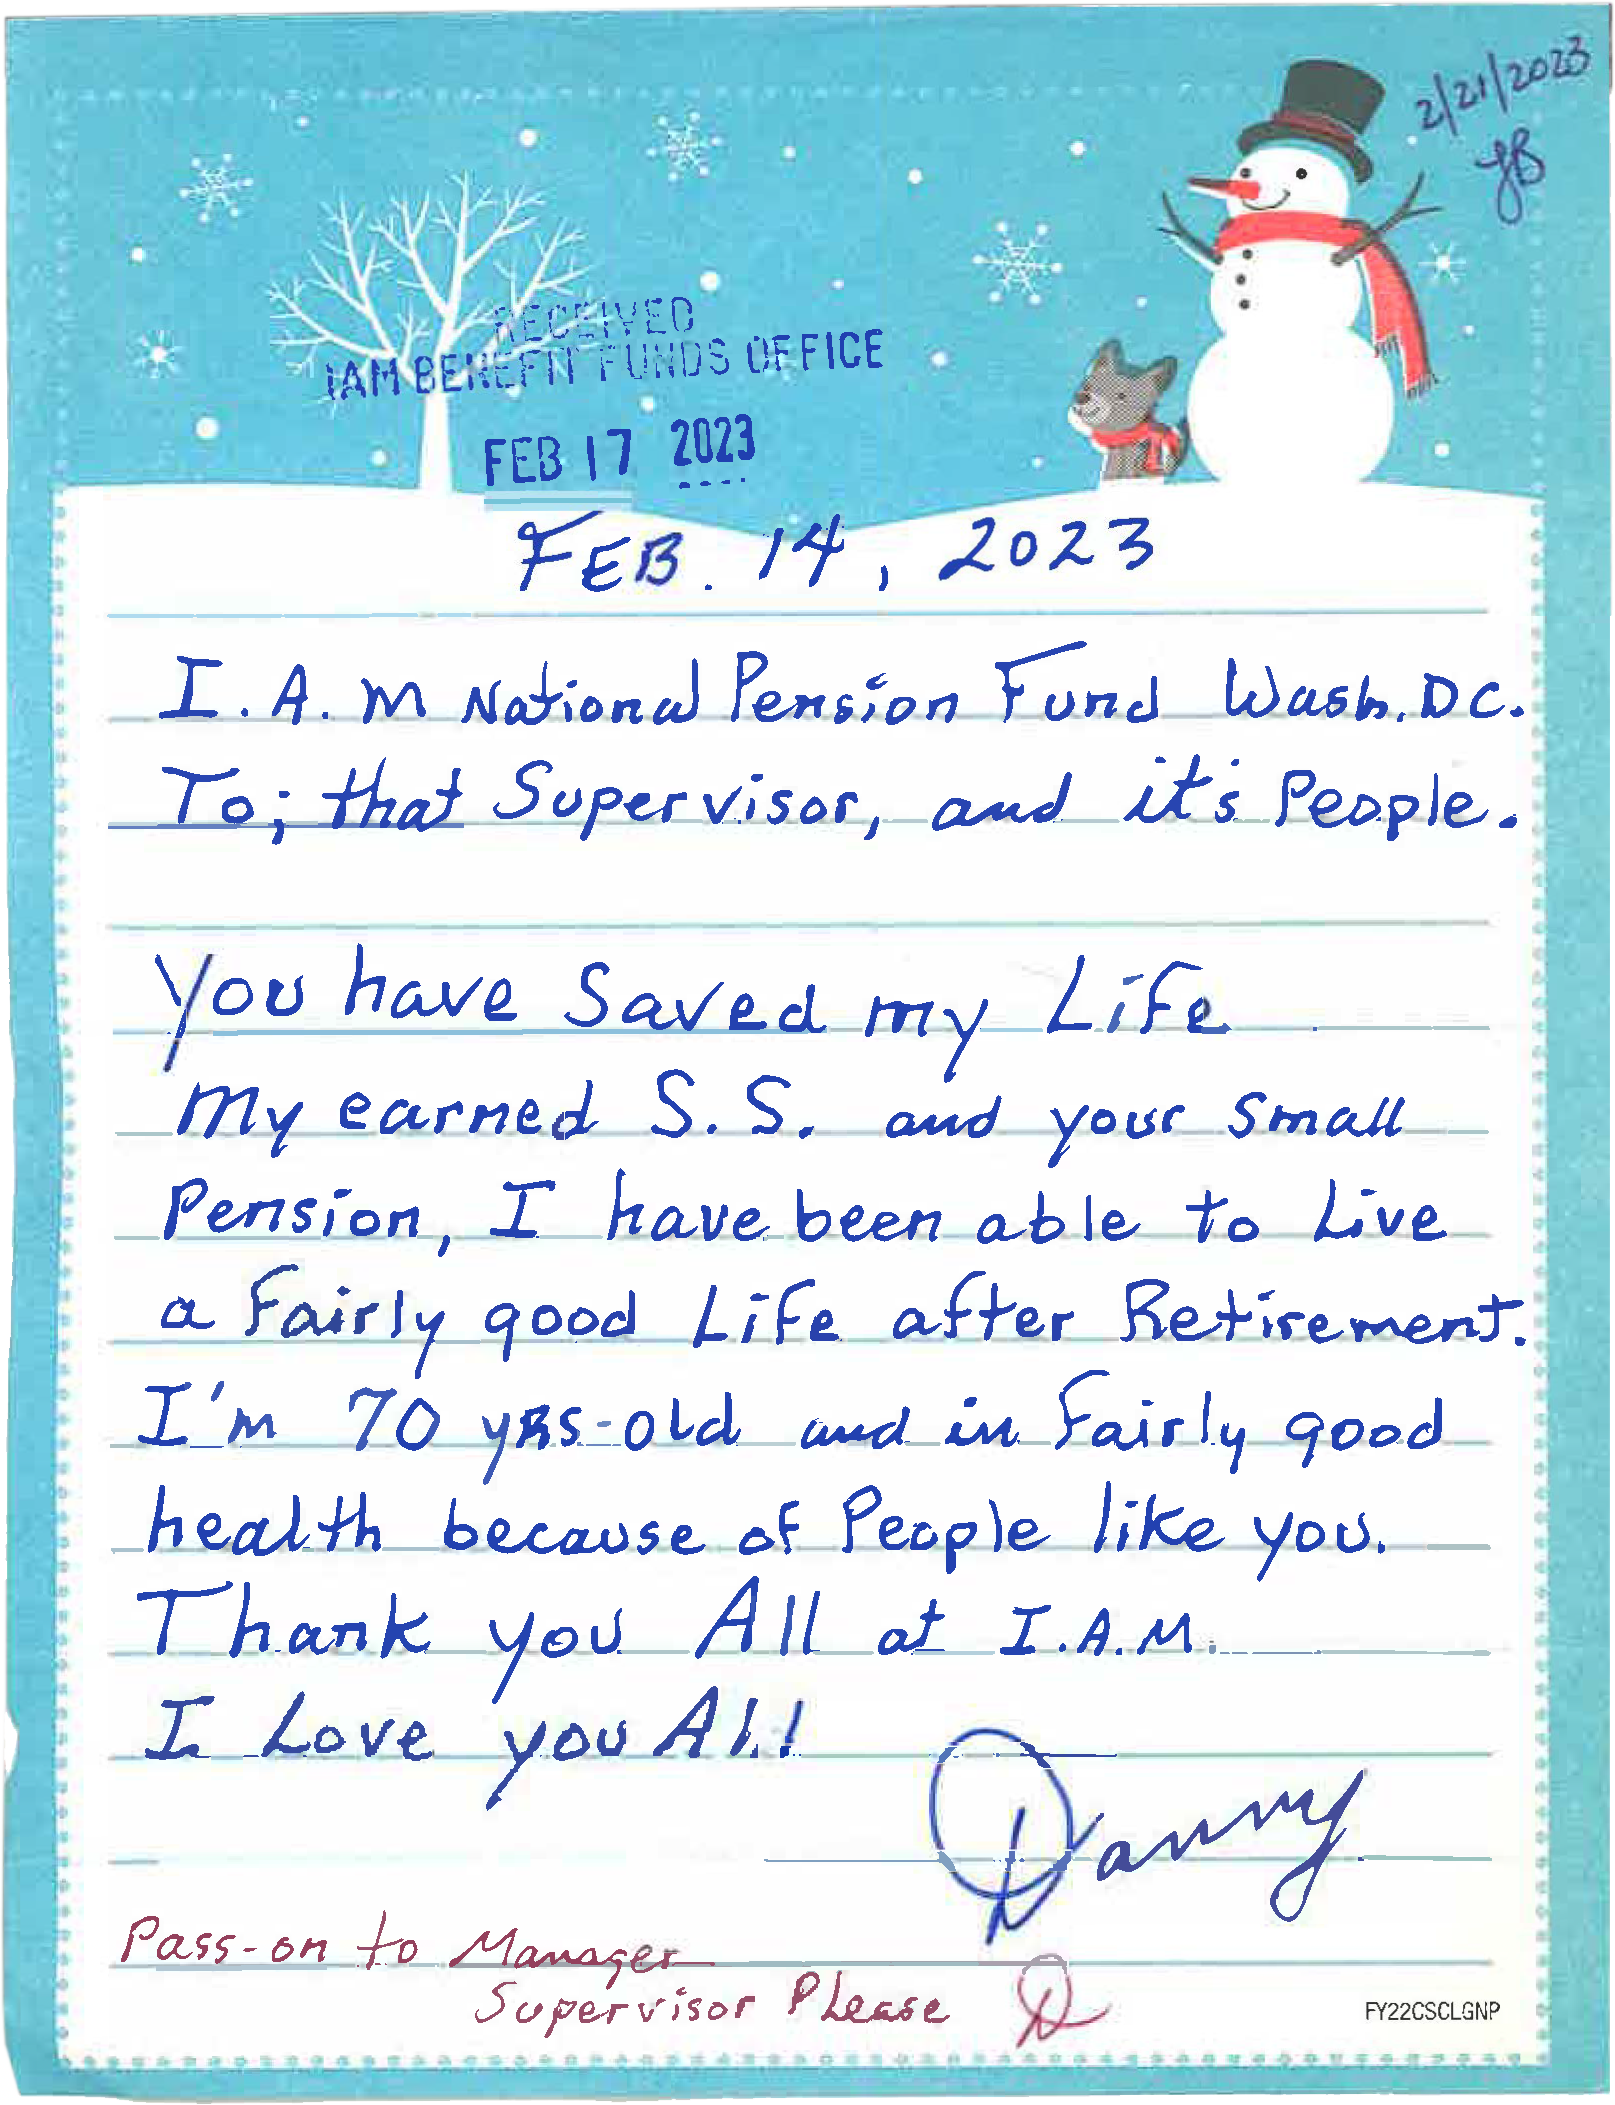 2/21/2023
JB
RECEIVED
IAM BENEFIT FUNDS OFFICE
FEB 17 2023
FEB. 14, 2023
I. A. M National Pension Fund Wash. DC.
To; that Supervisor, and it's People.
You have Saved my Life
My earned S. S. and your Small
Pension, I have been able to Live
a Fairly good Life after Retirement.
I'm 70 yrs-old and in Fairly good
health because of People like you.
Thank you All at I.A.M.
I Love you All!
Danny
Pass-on to Manager
Supervisor Please D
FY22CSCLGNP